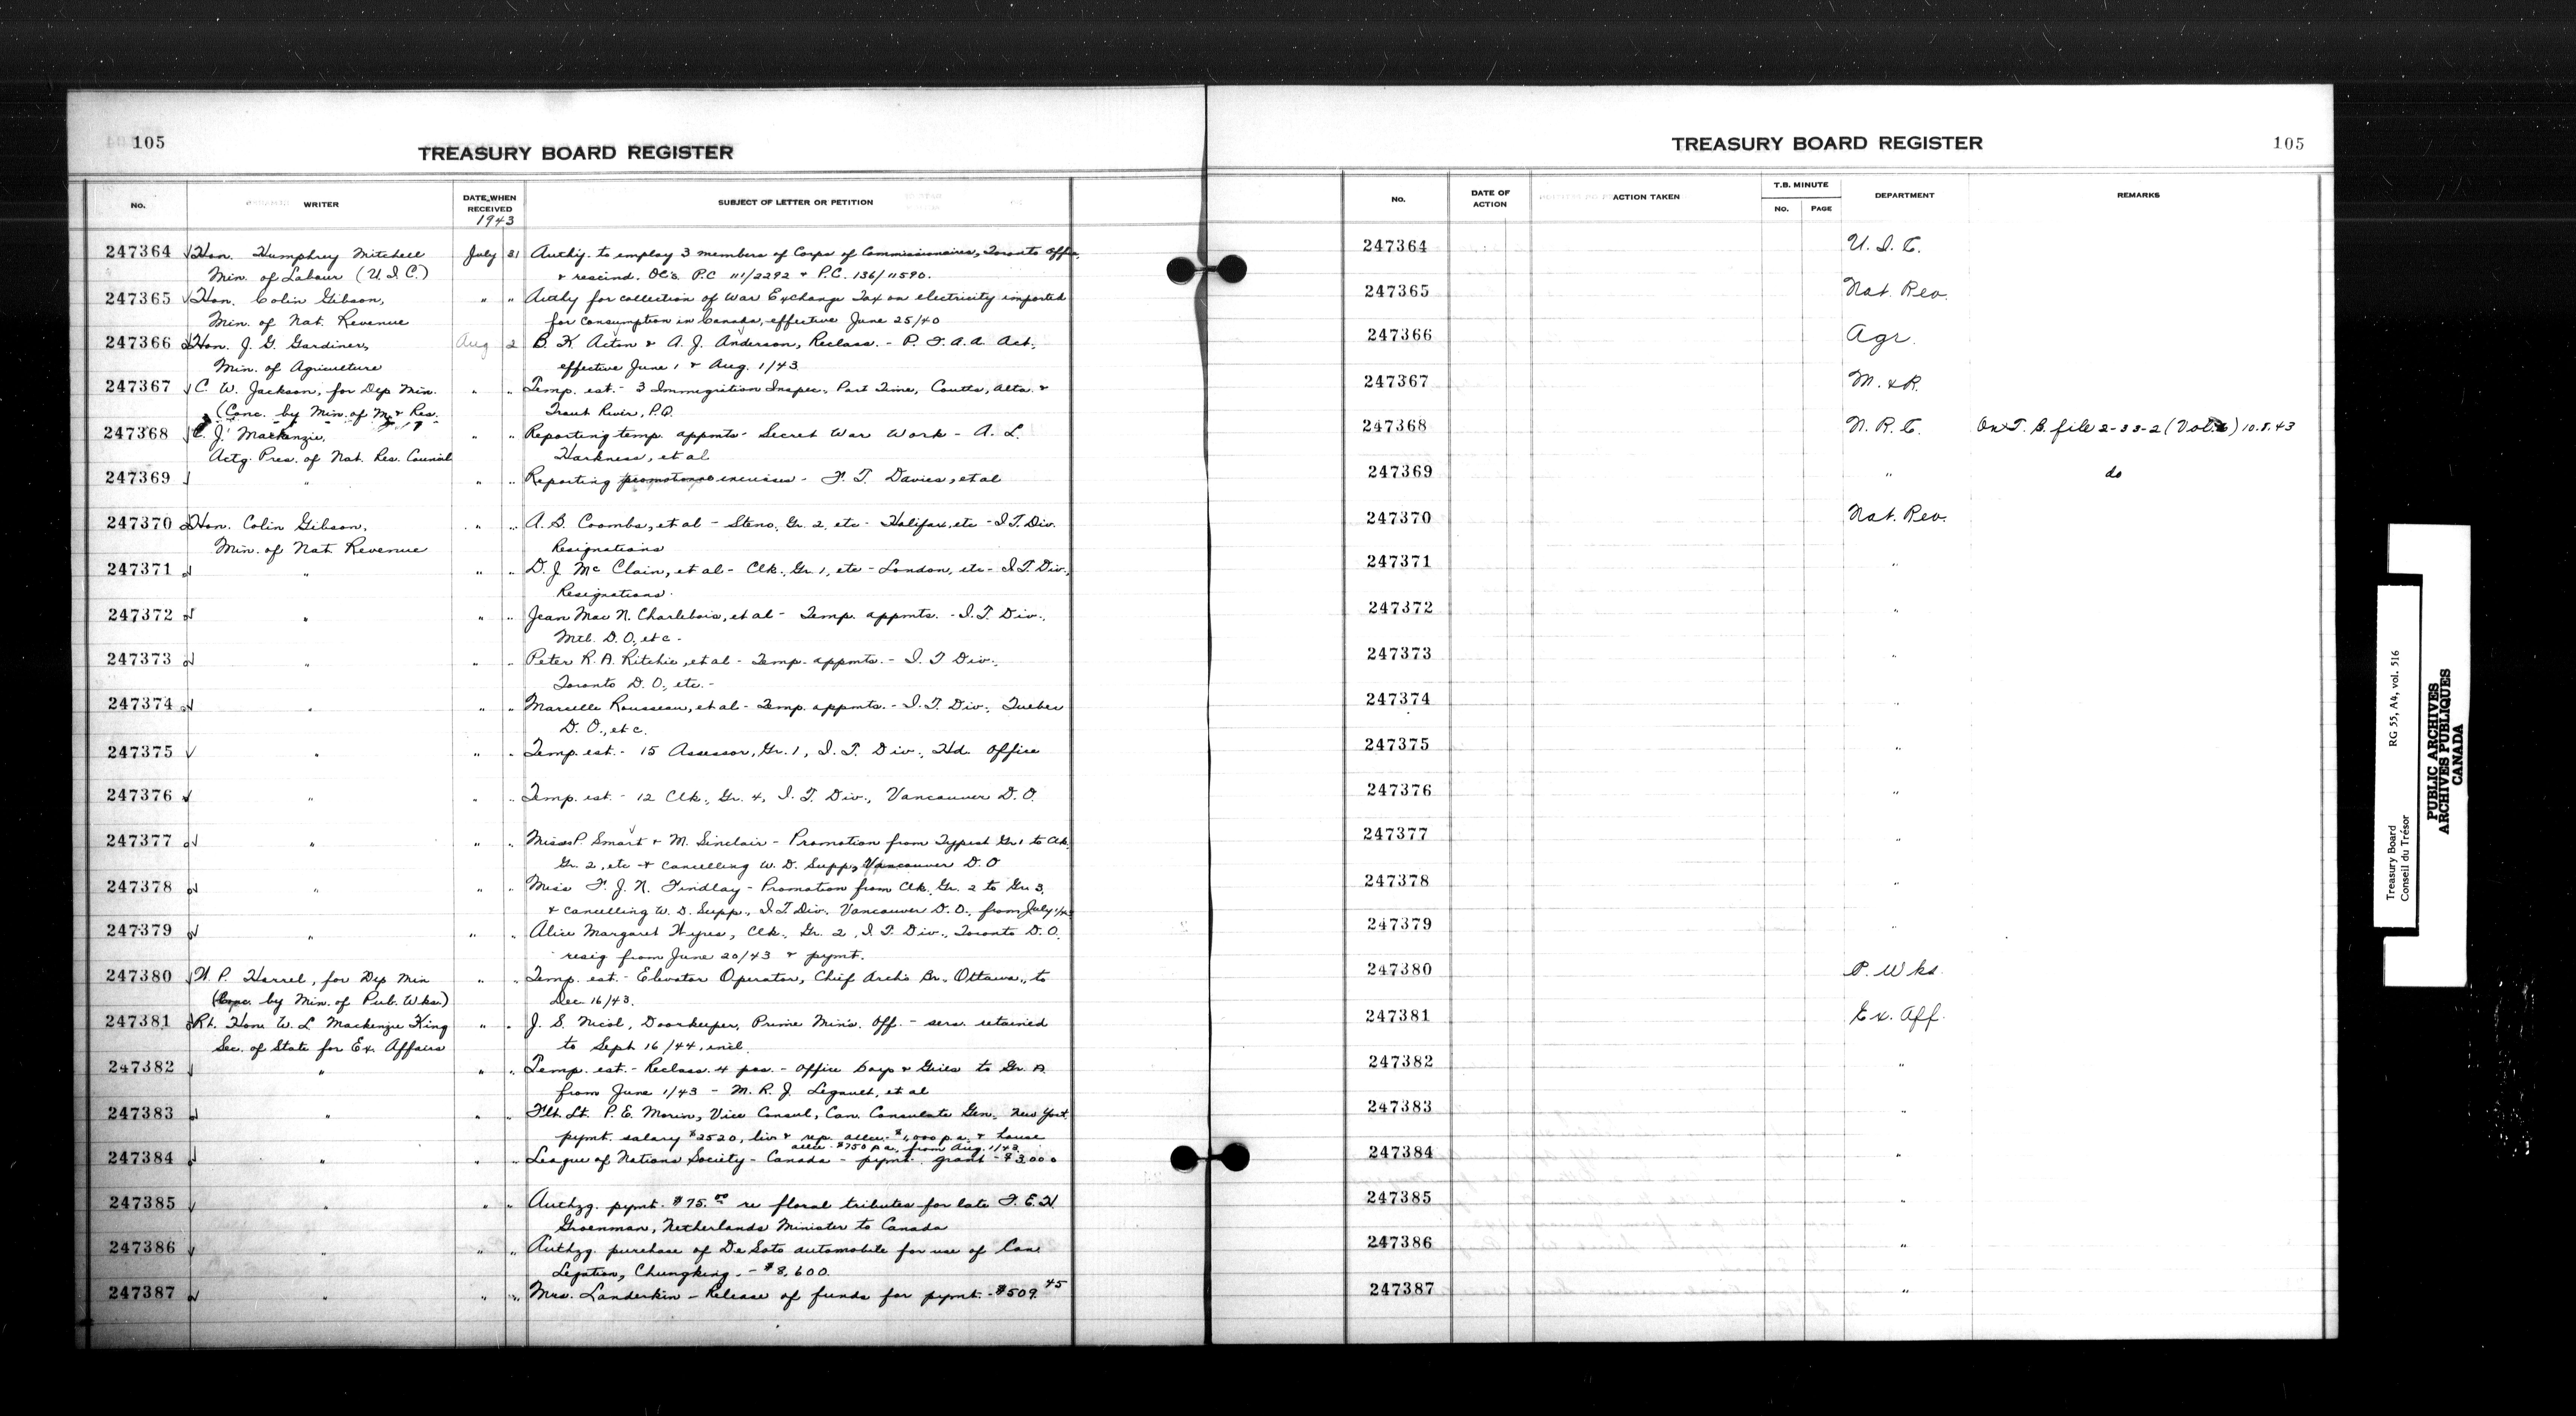 105
TREASURY BOARD REGISTER
No.
WRITER
DATE WHEN RECEIVED
1943
SUBJECT OF LETTER OR PETITION
247364 Hon. Humphrey Mitchell July 31 Authy. to employ 3 members of Corps of Commissionaires, Toronto Office,
Min. of Labour (U.I.C.) & rescind. OCs. P.C. 111/2292 & P.C. 136/11590.
247365 Hon. Colin Gibson, " " Authy for collection of War Exchange Tax on electricity imported
Min. of Nat. Revenue for consumption in Canada, effective June 25/40
247366 Hon. J. G. Gardiner, Aug 2 B. K. Acton & A. J. Anderson, Reclass. - P.F.A.A. Act,
Min. of Agriculture effective June 1 & Aug. 1/43
247367 C. W. Jackson, for Dep Min. " " Temp. est. - 3 Immigration Inspec., Part Time, Coutts, Alta. &
(Conc. by Min. of M. & Res. Trout River, P.Q.
247368 C. J. Mackenzie, " " Reporting temp. appmts - Secret War Work - A. L.
Actg. Pres. of Nat. Res. Council Harkness, et al
247369 " " " Reporting increases - F. T. Davies, et al
247370 Hon. Colin Gibson, " " A. B. Coombs, et al - Steno, Gr. 2, etc - Halifax, etc - I.T. Div.
Min. of Nat. Revenue Resignations
247371 " " " D. J. McClain, et al - Clk., Gr. 1, etc - London, etc - I.T. Div.,
Resignations.
247372 " " " Jean Mac N. Charlebois, et al - Temp. appmts. - I.T. Div.,
Mtl. D.O., etc -
247373 " " " Peter R. A. Ritchie, et al - Temp. appmts. - I.T Div.,
Toronto D.O., etc. -
247374 " " " Marcelle Rousseau, et al - Temp. appmts. - I.T. Div., Quebec
D.O., etc.
247375 " " " Temp. est. - 15 Assessor, Gr. 1, I.T. Div., Hd. Office
247376 " " " Temp. est. - 12 Clk., Gr. 4, I.T. Div., Vancouver D.O.
247377 " " " Misses P. Smart & M. Sinclair - Promotion from Typist Gr 1 to Clk.
Gr. 2, etc & cancelling W. D. Supp, Vancouver D.O
247378 " " " Miss F. J. N. Findlay - Promotion from Clk. Gr. 2 to Gr 3,
& cancelling W. D. Supp., I.T. Div. Vancouver D.O., from July
247379 " " " Alice Margaret Clk., Gr. 2, I.T. Div., Toronto D.O.
resig from June 20/43 & pymt.
247380 P. Harrel, for Dep Min " " Temp. est. - Elevator Operator, Chief Arch's Br., Ottawa, to
(Conc. by Min. of Pub. Wks.) Dec. 16/43.
247381 Rt. Hon. W. L Mackenzie King " " J. S. Nicol, Doorkeeper, Prime Min's. Off. - serv. retained
Sec. of State for Ex. Affairs to Sept 16/44, incl.
247382 " " " Temp. est. - Reclass. 4 pos. - Office Boys & Girls to Gr. A
from June 1/43 - M. R. J. Legault, et al
247383 " " " Flt. Lt. P. E. Morin, Vice Consul, Can. Consulate Gen. New York,
pymt. salary $2520, liv & rep. allow. $1,000 p.a. & house
allow. $750 p.a. from Aug. 1/43.
247384 " " " League of Nations Society - Canada - pymt. grant - $3,000
247385 " " " Authzg. pymt. $75.00 re floral tributes for late F. E. H.
Groenman, Netherlands Minister to Canada
247386 " " " Authzg. purchase of De Soto automobile for use of Can.
Legation, Chungking. - $8,600.
247387 " " " Mrs. Landerkin - Release of funds for pymt. - $509.45
TREASURY BOARD REGISTER
105
No.
DATE OF ACTION
ACTION TAKEN
T.B. MINUTE
No.
PAGE
DEPARTMENT
REMARKS
247364 U. I. C.
247365 Nat. Rev.
247366 Agr.
247367 M. & R.
247368 N. R. C. On T. B. file 2-33-2 10.8.43
247369 " do
247370 Nat. Rev.
247371 "
247372 "
247373 "
247374 "
247375 "
247376 "
247377 "
247378 "
247379 "
247380 P. Wks.
247381 Ex. Aff.
247382 "
247383 "
247384 "
247385 "
247386 "
247387 "
Treasury Board RG 55, A4, vol. 516
Conseil du Trésor
PUBLIC ARCHIVES
ARCHIVES PUBLIQUES
CANADA